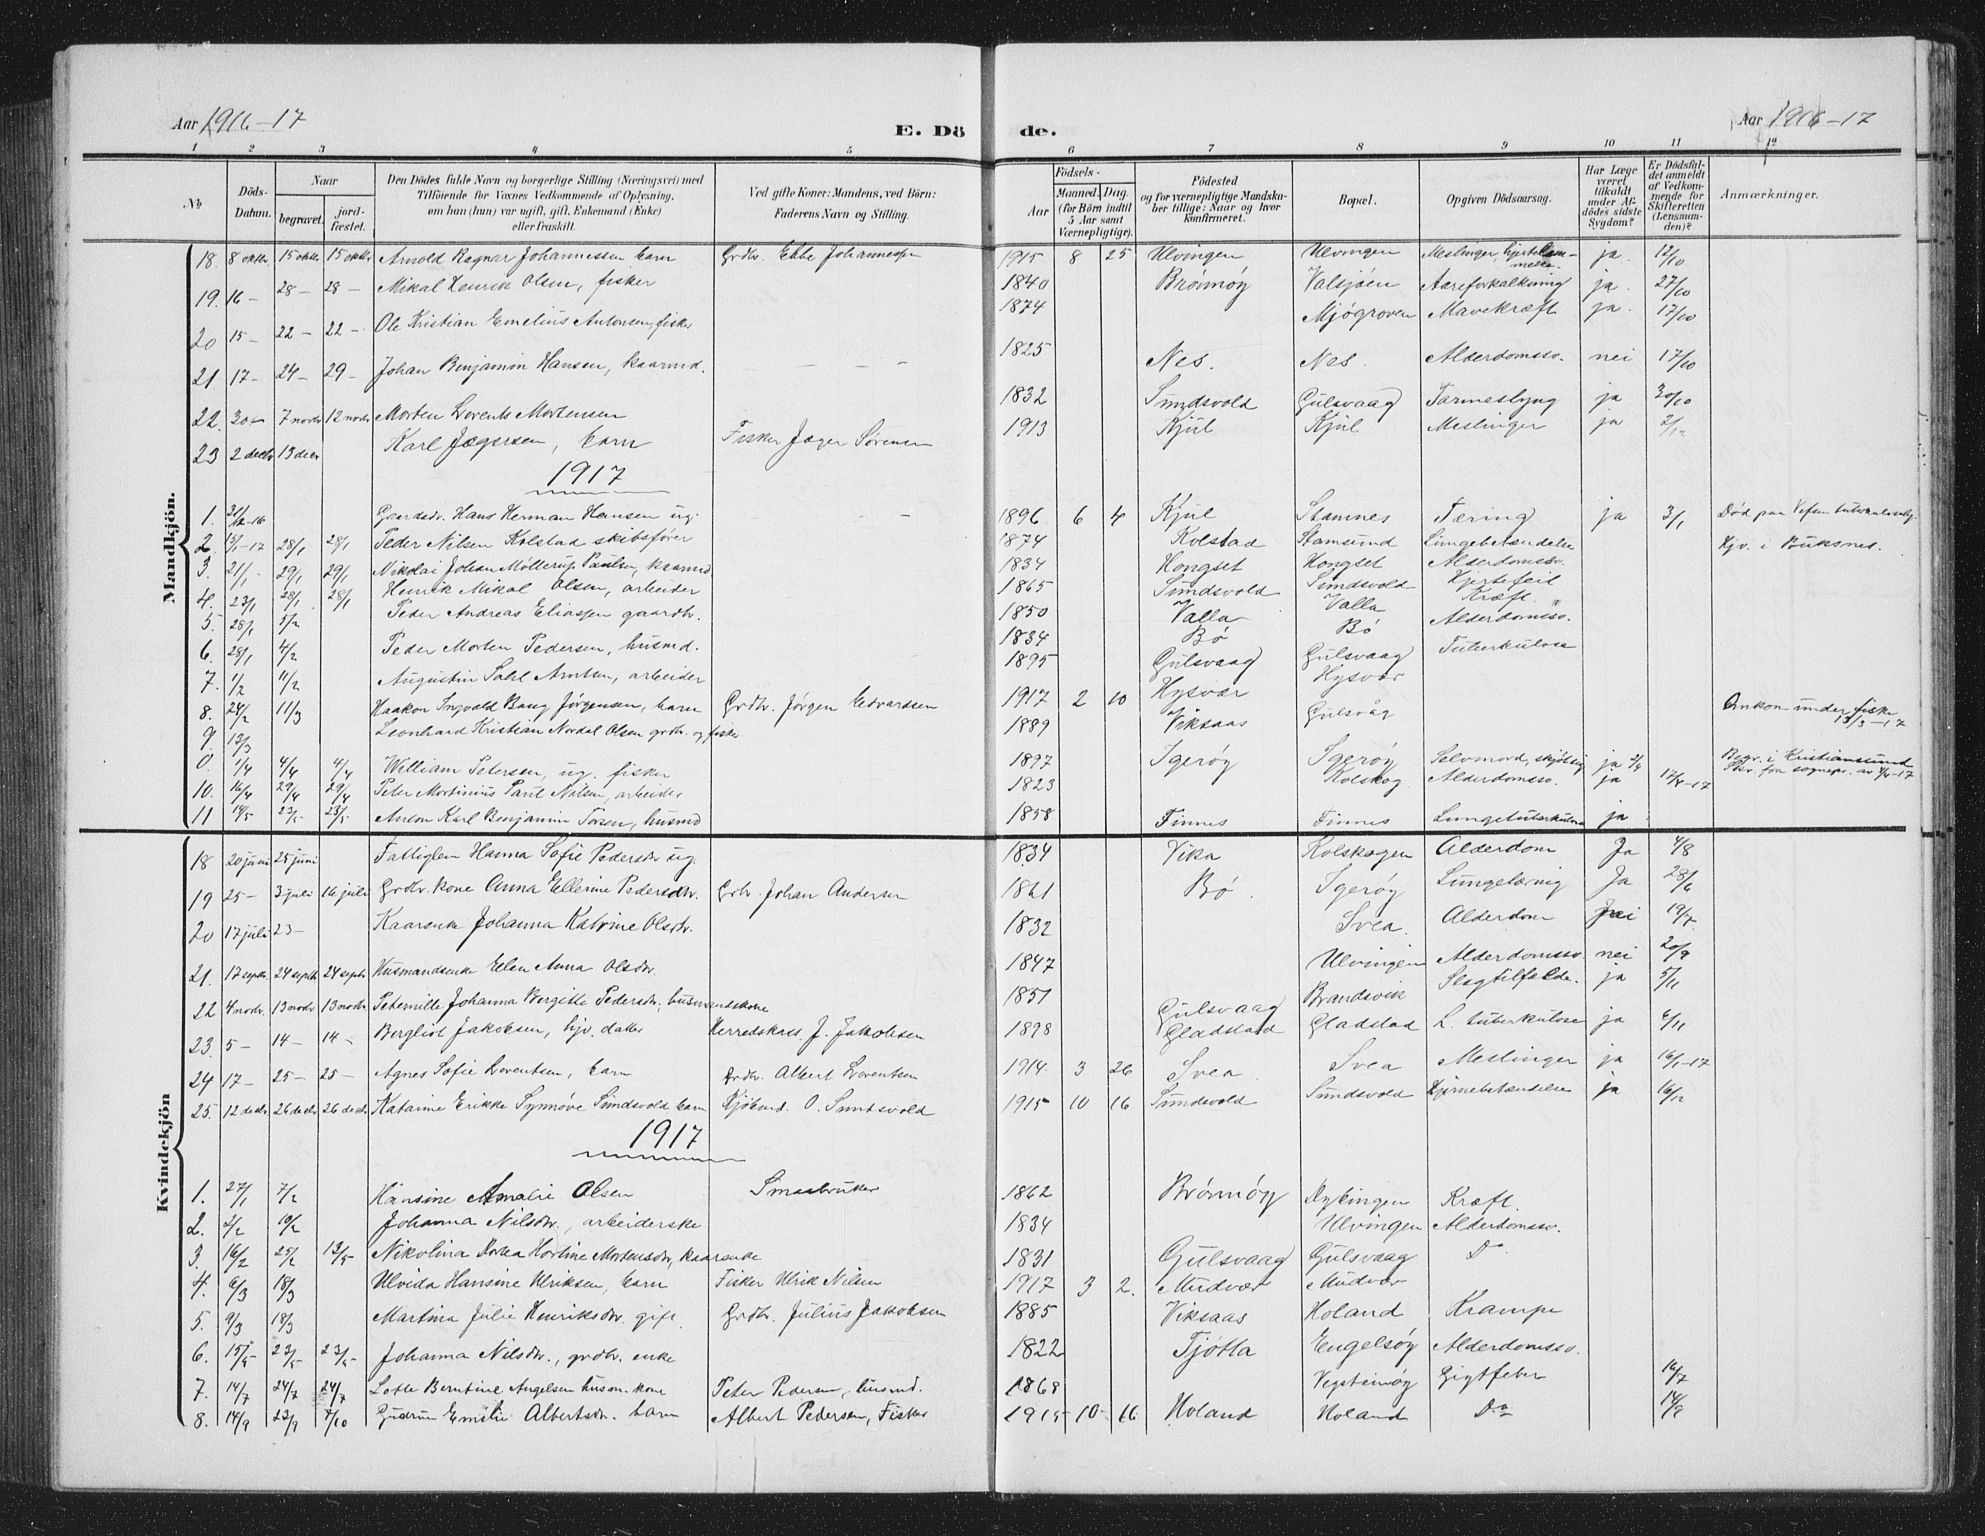 Aar 1916-17
E. Dö de.
Aar 1916-17
1 2 3 4 5 6 7 8 9 10 11 12
No
Döds-Datum.
Naar
begravet.
jord-fæstet.
Den Dödes fulde Navn og borgerlige Stilling (Næringsvei) med Tilföiende for Voxnes Vedkommende af Oplysning, om han (hun) var ugift, gift, Enkemand (Enke) eller fraskilt.
Ved gifte Koner: Mandens, ved Börn: Faderens Navn og Stilling.
Födsels-
Aar
Maaned. Dag.
(for Börn indtil 5 Aar samt Værnepligtige).
Födested og for værnepligtige Mandskaber tillige: Naar og hvor konfirmeret.
Bopæl.
Opgiven Dödsaarsag.
Har Læge været tilkaldt under Afdödes sidste Sygdom?
Er Dödsfaldet anmeldt af Vedkommende for Skifteretten (Lensmanden)?
Anmærkninger.
Mandkjön.
18. 8 oktbr. 15 oktbr 15 oktbr Arnold Ragnar Johannessen barn Grdbr. Ebbe Johannessen 1915 8 25 Ulvingen Ulvingen Meslinger, ja. 12/10
19. 16 - 28 - 28 - Mikal Henrik Olsen, fisker 1840 Brönnöy Valsjöen Aareforkalkning ja. 27/10
20 15 - 22 - 22 - Ole Kristian Emelius Antonsen, fisker 1874 Mjögroven Mavekræft ja. 17/10
21 17 - 24 - 29 - Johan Benjamin Hansen, kaarmd. 1825 Nes. Nes. Alderdomssv. nei 17/10
22. 30 - 7 novbr 12 novbr Morten Lorents Mortensen 1832 Sundsvold Gulsvaag Tarmeslyng ja 30/10
23 2 decbr 13 decbr Karl Jægersen, barn Fisker Jæger Sörensen 1913 Kjul Kjul Meslinger ja 2/12
1917
1. 31/12-16 Gaardsdr. Hans Herman Hansen ug. 1896 6 4 Kjul Stamnes Tæring ja 3/1 Död paa Vefsn
2. 13/1-17 28/1 28/1 Peder Nilsen Kolstad skibsförer 1874 Kolstad Stamsund Lungebetændelse Hjv. i Buksnes.
3. 21/1 - 29/1 29/1 Nikolai Johan Möllerup Paulsen, kaarmd 1834 Hongset Hongset Alderdomssv.
4. 23/1 28/1 28/1 Henrik Mikal Olsen, arbeider 1865 Sundsvold Sundsvold Hjertefeil
5. 28/1 5/2 Peder Andreas Eliassen gaardbr. 1850 Valla Valla Kræft.
6. 28/1 4/2 Peder Morten Pedersen, husmd. 1834 Bö Bö Alderdomssv.
7. 1/2 11/2 Augustin Arntsen, arbeider 1895 Gulsvaag Gulsvaag Tuberkulose
8. 24/2 11/3 Haakon Ingvald Bang Jörgensen, barn Grdbr. Jörgen Edvardsen 1917 2 10 Hysvær Hysvær
9. 13/3 Leonhard Kristian Nordal Olsen grdbr. og fisker 1889 Viksaas Gulsvåg Omkom under fiske 13/3-17
0. 1/4 4/4 4/4 William Petersen, ug. fisker 1897 Igeröy Igeröy Selvmord, ja 2/4 Begr. i Kristianssund
10. 16/4 29/4 29/4 Peter Mortinius Paul Nilsen, arbeider 1823 Kolskog Alderdomssv. ja 17/4-17
11 14/5 23/5 23/5 Anton Karl Benjamin husmd 1858 Finnes Finnes Lungetuberkulose ja
Kvindekjön
18 20 juni 25 juni Fattiglem Hanna Sofie Pedersdr ug. 1834 Vika Kolskogen Alderdom Ja 4/8
19 25 - 3 juli 16 juli Grdbr. kone Anna Elline Pedersdtr. Grbr. Johan Andersen 1861 Bö Igeröy Ja 28/6
20 17 juli 23 - Kaarenke Johanna Katrine Olsdtr. 1832 Svea. Alderdom nei 19/7
21. 17 septbr 24 septbr 24 septbr Husmandsenke Elen Anna Olsdtr. 1847 Ulvingen Alderdomssv nei 20/9
22 4 novbr. 13 novbr 13 novbr Peternille Johanna Bergitte Pedersdtr, husmandskone 1851 Gulsvaag Brandsvik Slagtilfælde. ja 5/11
23. 5 - 14 - 14 - Bergliot Jakobsen, hjv. datter Herredskas. J. Jakobsen 1898 Gladstad Gladstad L. tuberkulose ja 6/11
24 17 - 25 - 25 - Agnes Sofie Lorentsen, barn Grdbr. Albert Lorentsen 1914 3 26 Svea Svea Meslinger ja 16/1-17
25. 12 decbr 26 decbr 26 decbr Katarine Erikke Synnöve Sundsvold barn Kjöbmd. O. Sundsvold 1915 10 16 Sundsvold Sundsvold Hjernebetændelse ja 16/12
1917
1. 27/1 7/2 Hansine Amalie Olsen Smaabruker 1862 Brönnöy Rykingen Kræft.
2. 2/2 10/2 Johanna Nilsdtr., arbeiderske 1834 Ulvingen Alderdomssv.
3. 16/2 25/2 13/5 Nikolina Dorea Hortine Mortensdtr, kaarenke 1831 Gulsvaag Gulsvaag Do.
4. 6/3 18/3 Ulvida Hansine Ulriksen, barn Fisker Ulrik Nilsen 1917 3 2. Mudvær Mudvær
5. 9/3 18/3 Martina Julie Henriksdtr. gift. Grdbr. Julius Jakobsen 1885 Viksaas Holand Krampe
6. 15/4 - 23/5 - 23/5 - Johanna Nilsdtr., grdbr. enke 1822 Tjötta Engelsöy Alderdomssv.
7. 14/7 24/7 24/7 Lotte Berntine Angelsen husm. kone Peter Pedersen, husmd. 1868 Vegsteinöy Gigtfeber 16/7
8. 14/9 23/9 7/10 Gudrun Emilie Albertsdr. barn Albert Pedersen, Fisker 1915 10 - 16 Holand Holand Do 14/9